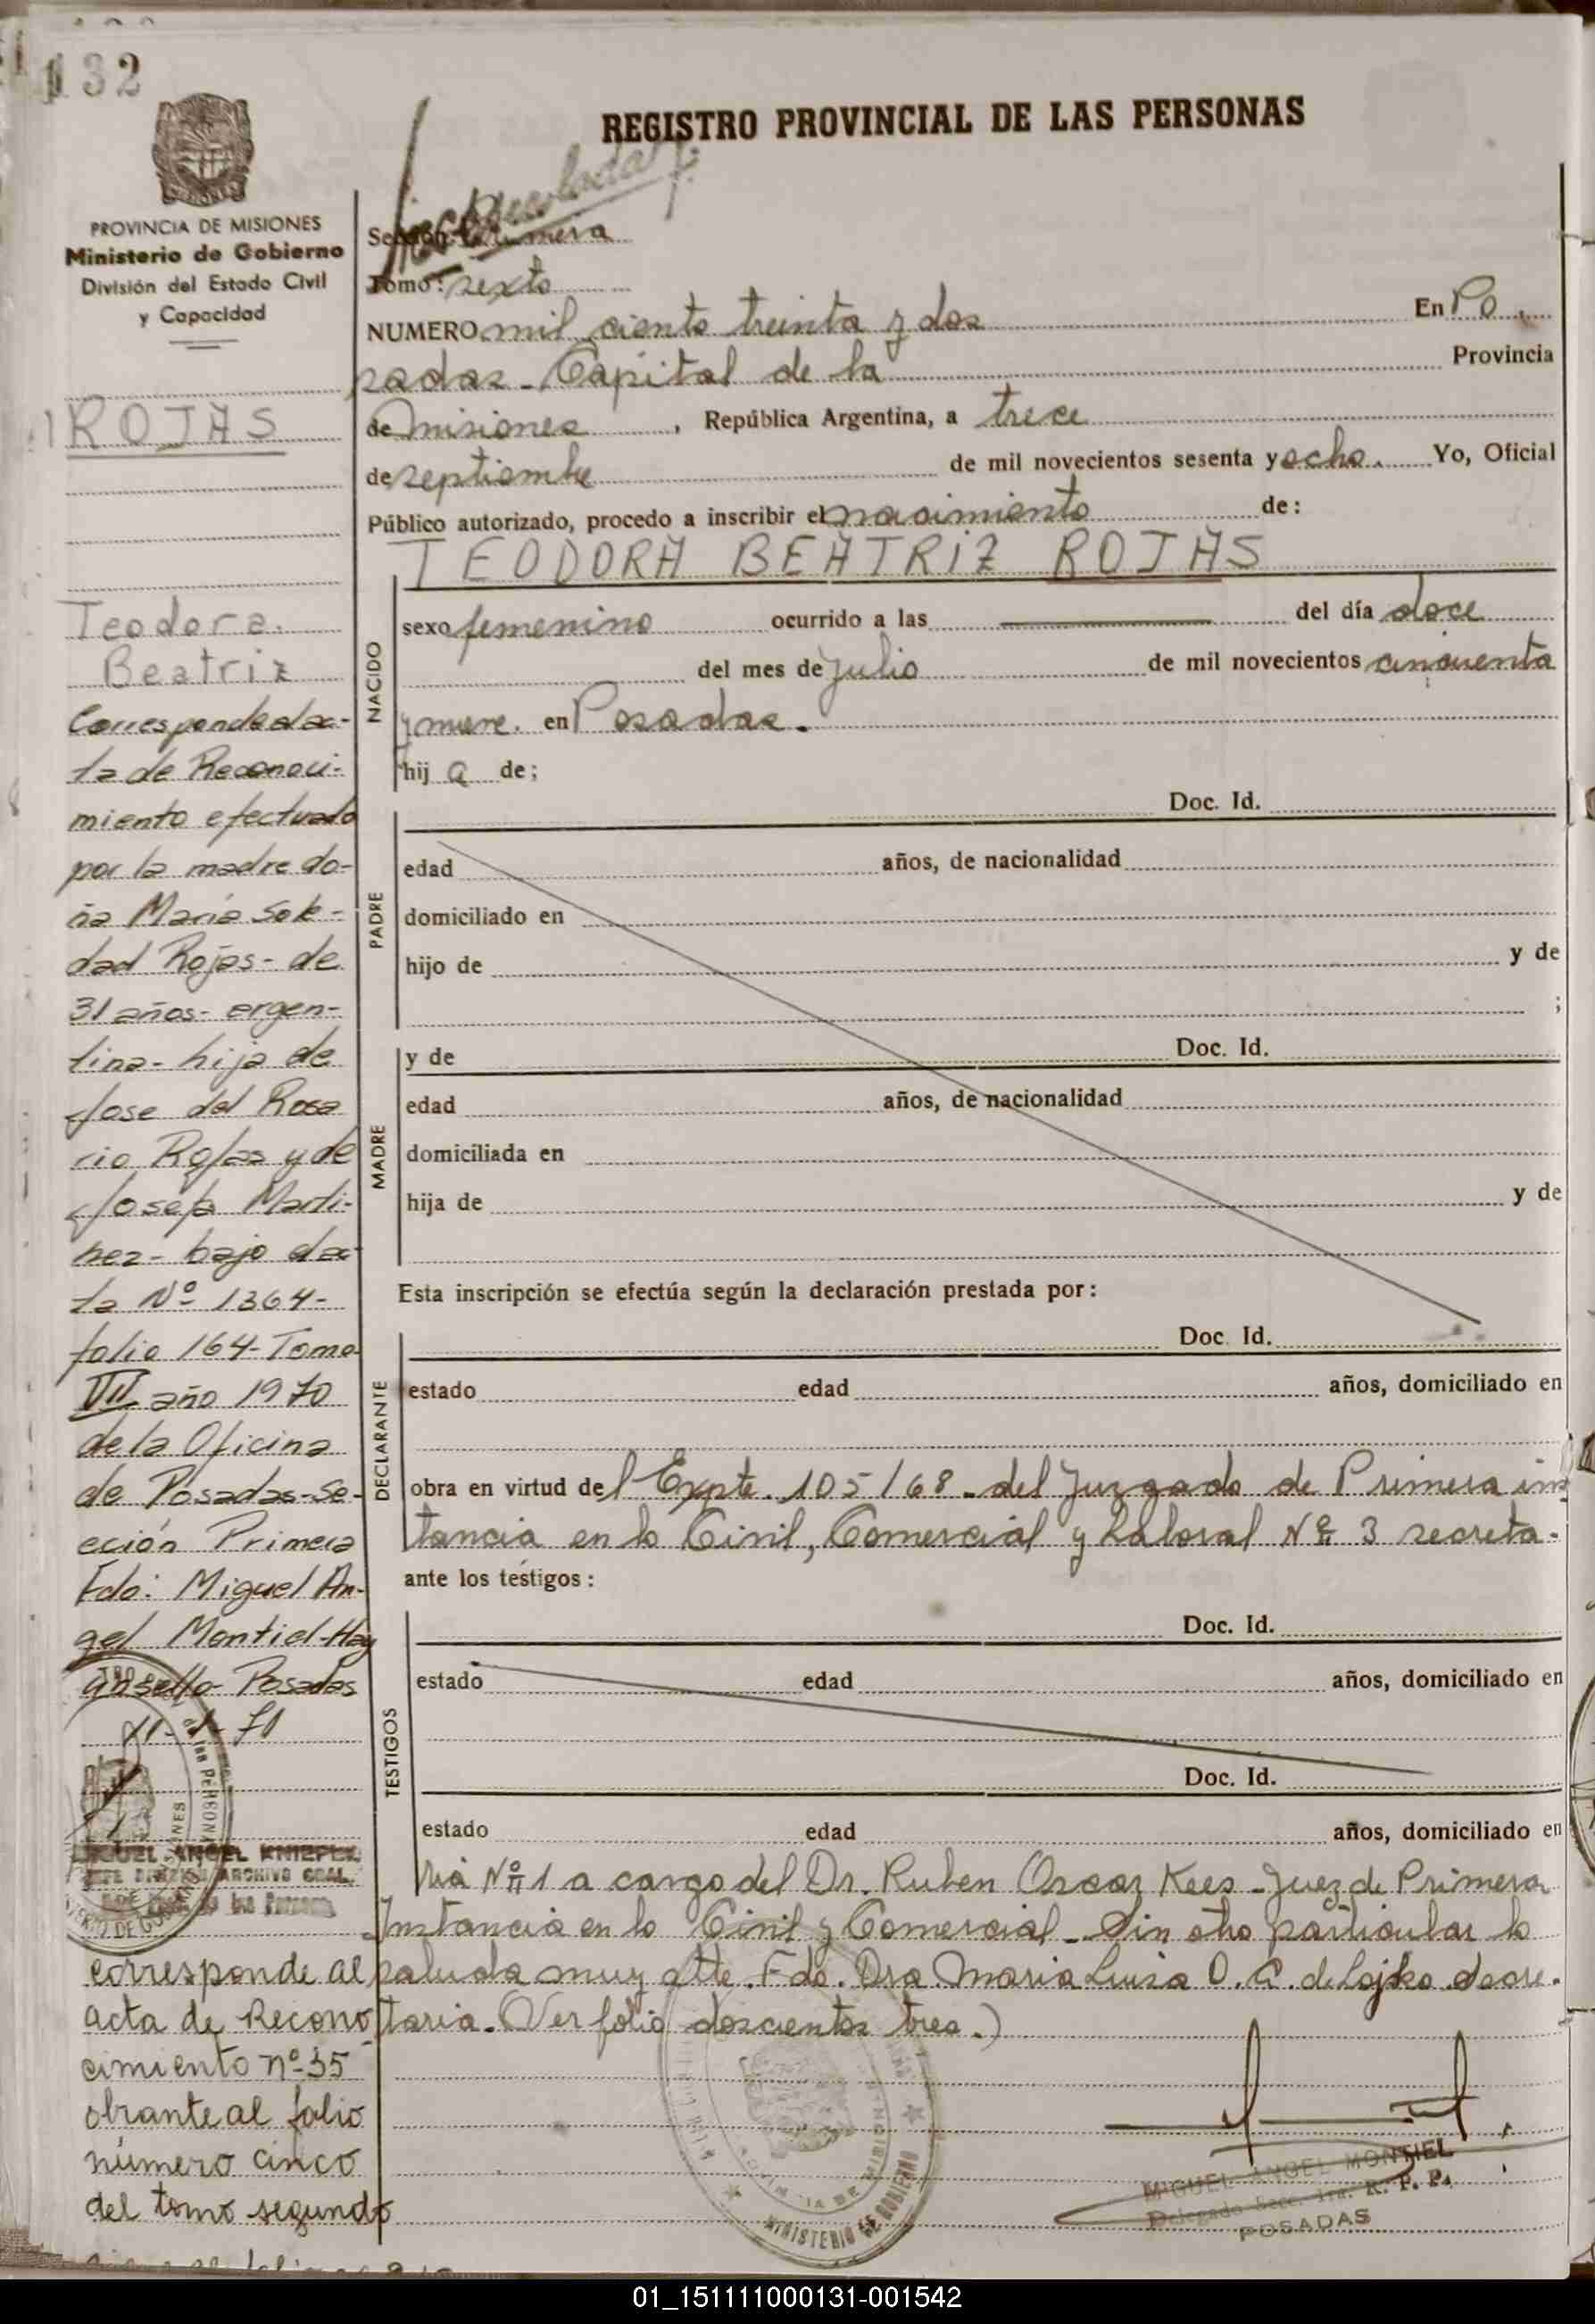 132
REGISTRO PROVINCIAL DE LAS PERSONAS
PROVINCIA DE MISIONES
Ministerio de Gobierno
División del Estado Civil
y Capacidad
ROJAS
Teodora
Beatriz
Corresponde al ac-
ta de Reconoci-
miento efectuado
por la madre do-
ña María Sole-
dad Rojas - de
31 años - argen-
tina - hija de
Jose del Rosa
rio Rojas y de
Josefa Marti-
nez - bajo el ac-
ta Nº 1364-
folio 164 - Tomo
VII año 1970
de la Oficina
de Posadas - Se-
cción Primera
Fdo: Miguel An-
gel Montiel - Hay
un sello - Posadas
MIGUEL ANGEL KNIEPLK
corresponde al
acta de Recono
cimiento nº 35
obrante al folio
número cinco
del tomo segundo
Sección: Primera
Tomo: sexto
NUMERO mil ciento treinta y dos En Po
sadas - Capital de la Provincia
de Misiones, República Argentina, a trece
de septiembre de mil novecientos sesenta y ocho. Yo, Oficial
Público autorizado, procedo a inscribir el nacimiento de:
TEODORA BEATRIZ ROJAS
NACIDO
sexo femenino ocurrido a las del día doce
del mes de Julio de mil novecientos cincuenta
y nueve. en Posadas.
hij a de;
PADRE
Doc. Id.
edad años, de nacionalidad
domiciliado en
hijo de y de
;
MADRE
y de Doc. Id.
edad años, de nacionalidad
domiciliada en
hija de y de
Esta inscripción se efectúa según la declaración prestada por:
DECLARANTE
Doc. Id.
estado edad años, domiciliado en
obra en virtud del Expte. 105/68 - del Juzgado de Primera ins
tancia en lo Civil, Comercial y Laboral Nº 3 secreta-
ante los testigos:
TESTIGOS
Doc. Id.
estado edad años, domiciliado en
Doc. Id.
estado edad años, domiciliado en
ria Nº 1 a cargo del Dr. Ruben Oscar Kees - Juez de Primera
Instancia en lo Civil y Comercial - Sin otro particular lo
saluda muy atte. Fdo. Dra Maria Luisa O. G. de Lojko. Secre-
taria. (Ver folio doscientos tres.)
MINISTERIO DE GOBIERNO
MIGUEL ANGEL MONTIEL
Delegado Secc. 1ra. R. P. P.
POSADAS
01_151111000131-001542